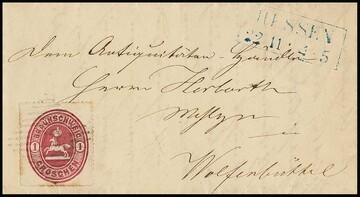 HESSEN
22 11 2-5
Dem Antiquitäten-Händler
Herrn Herbarth
in
Wolfenbüttel
BRAUNSCHWEIG
1 1
GROSCHEN